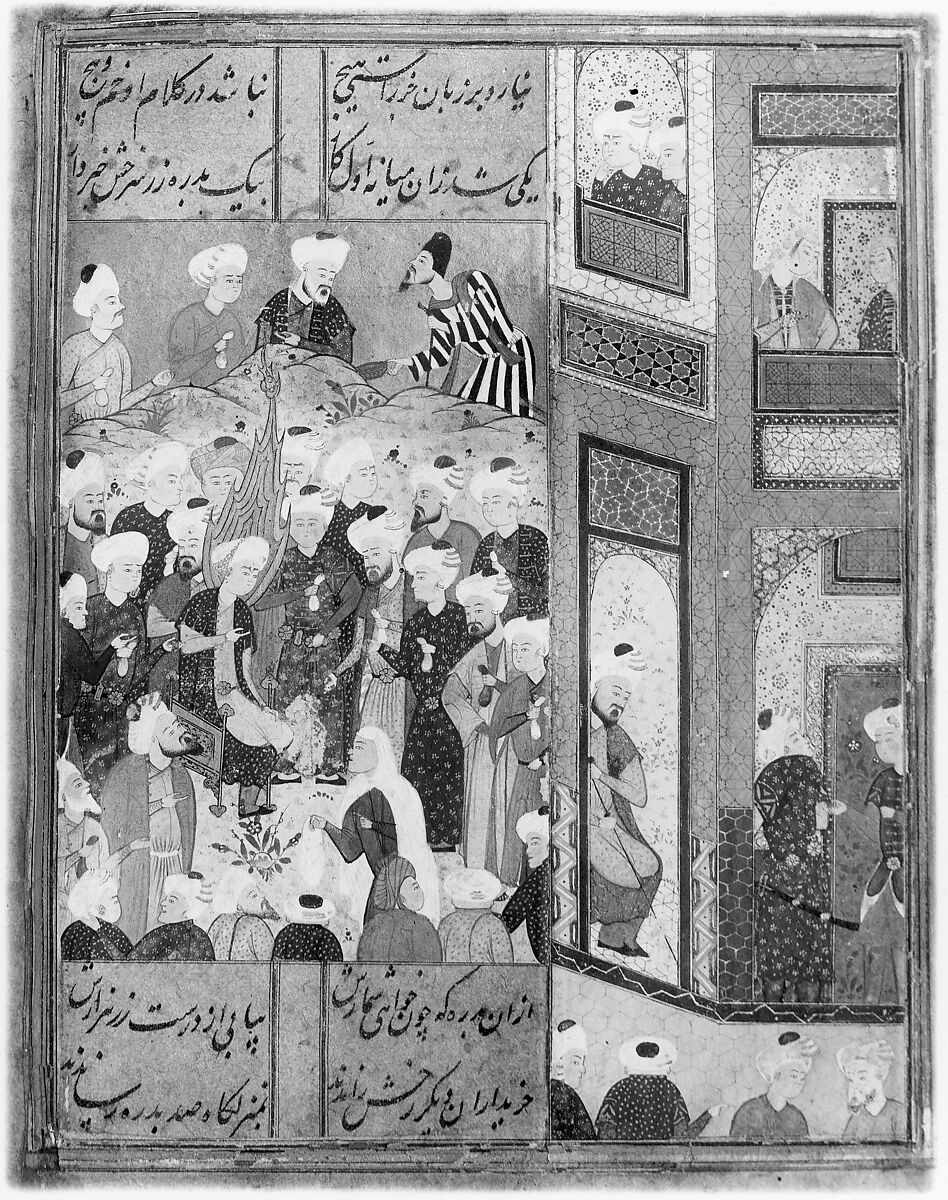 نیارد بر زبان جز راستی هیچ
نباشد در کلام او خم و پیچ
یکی شد زان میانه اول کار
بیک بدره زر سرخش خریدار
ازان بدره که چون خواهی شمارش
بیابی از درست زر هزارش
خریداران دیگر رخش راندند
بمنزلگاه صد بدره رساندند